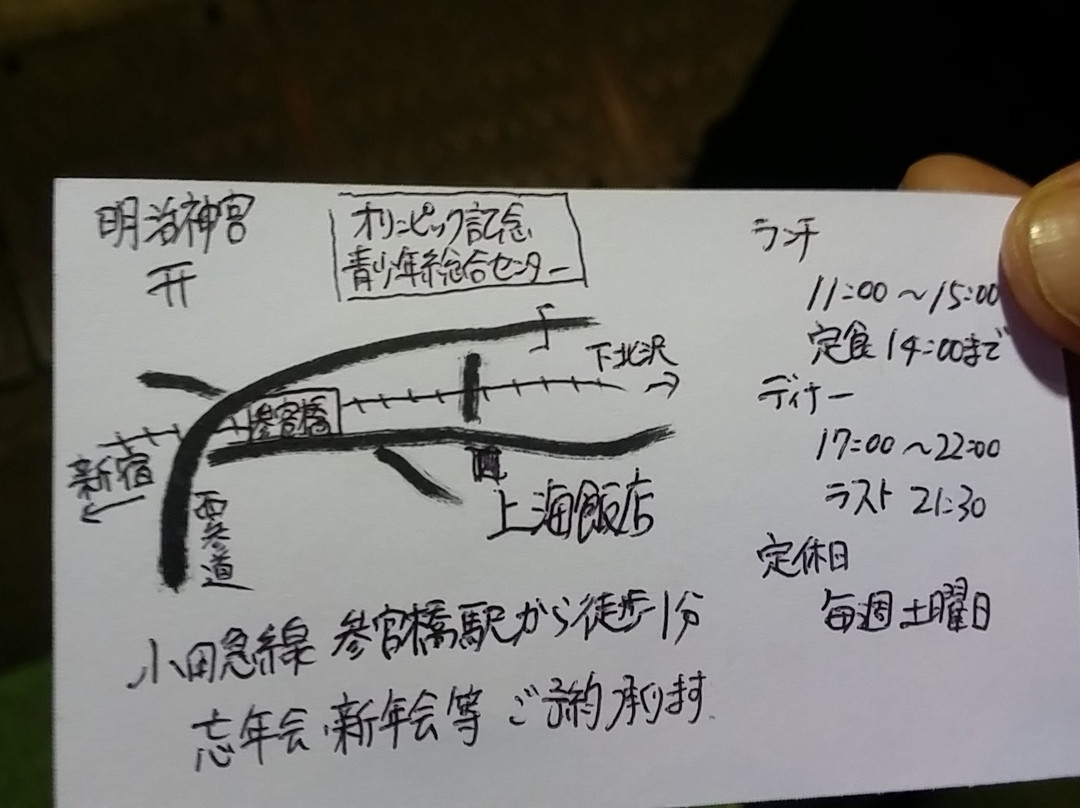 明治神宮
オリンピック記念
青少年総合センター
下北沢
参宮橋
新宿
西参道
上海飯店
小田急線 参宮橋駅から徒歩1分
忘年会、新年会等 ご予約承ります
ランチ
11:00～15:00
定食 14:00まで
ディナー
17:00～22:00
ラスト 21:30
定休日
毎週土曜日